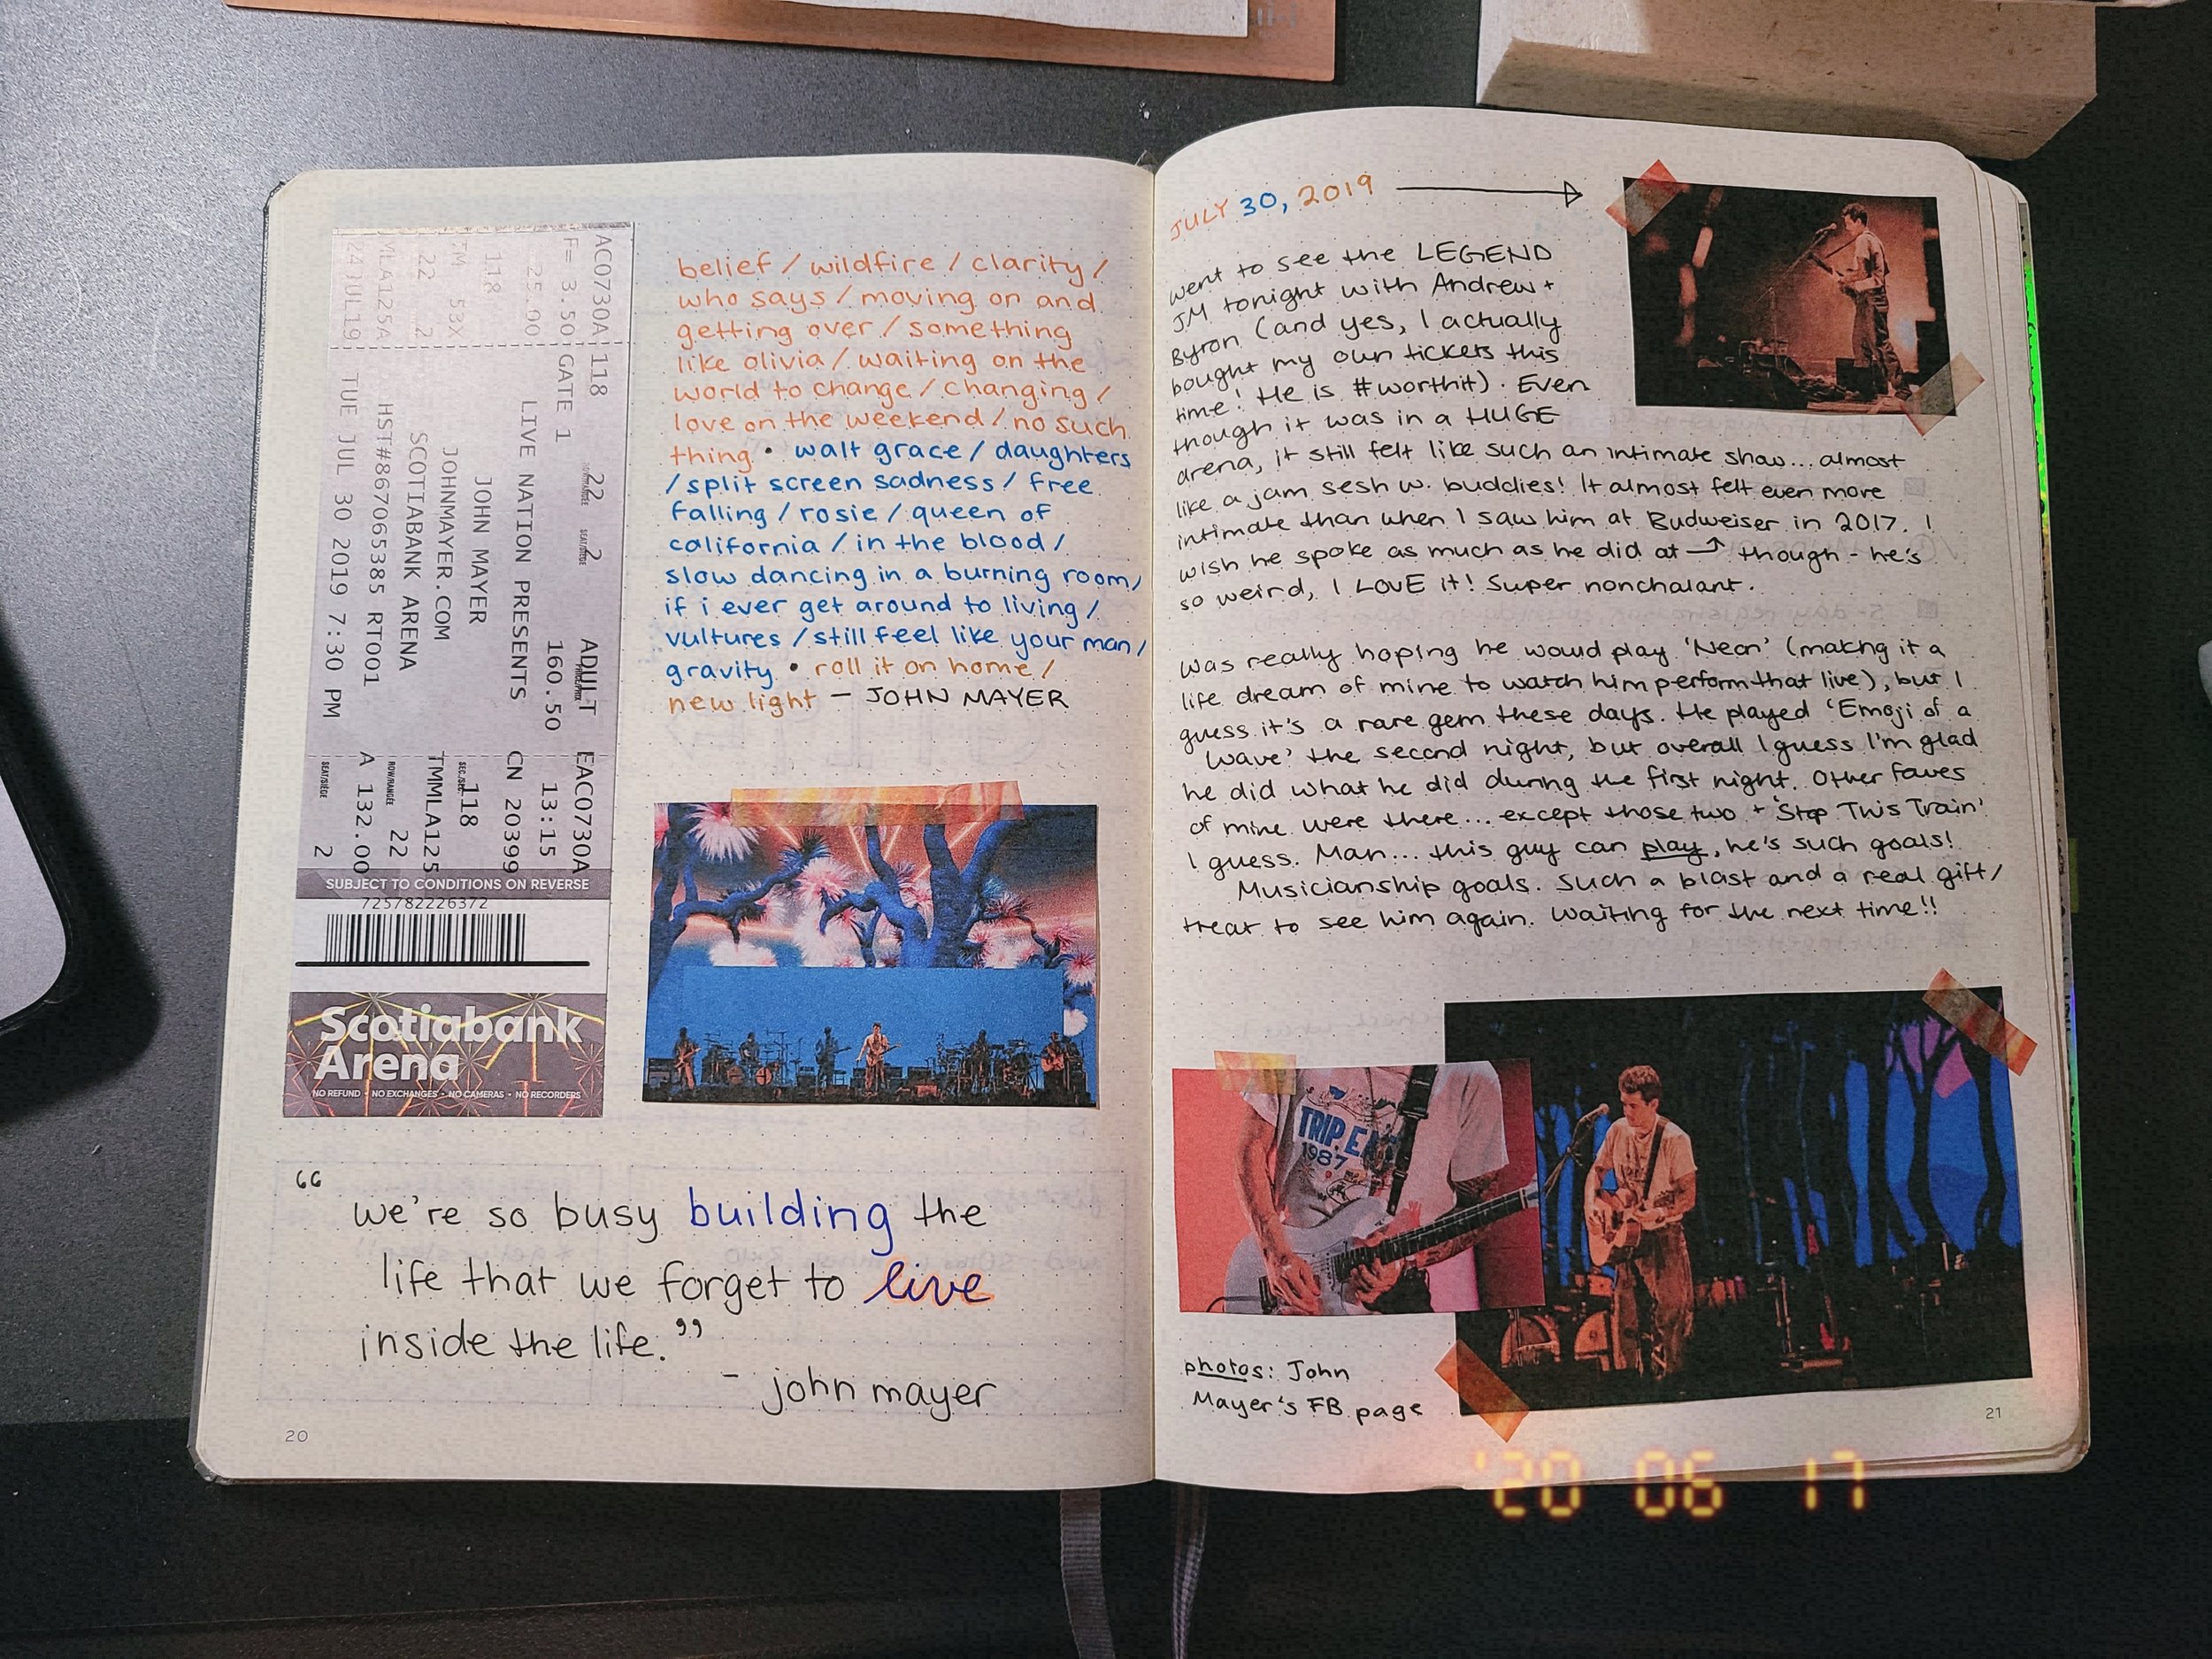 AC0730A 118 22 2 ADULT EAC0730A
ROW/RANGÉE SEAT/SIÈGE PRICE/PRIX
F= 3.50 GATE 1 160.50 13:15
25.00 LIVE NATION PRESENTS CN 20399
118 JOHN MAYER SEC./SEC. 118
TM 53X JOHNMAYER.COM TMMLA125
22 2 SCOTIABANK ARENA ROW/RANGÉE 22
MLA125A HST#867065385 RT001 A 132.00
24JUL19 TUE JUL 30 2019 7:30 PM SEAT/SIÈGE 2
SUBJECT TO CONDITIONS ON REVERSE
725782226372
Scotiabank
Arena
NO REFUND • NO EXCHANGES • NO CAMERAS • NO RECORDERS
belief / wildfire / clarity /
who says / moving on and
getting over / something
like olivia / waiting on the
world to change / changing /
love on the weekend / no such
thing • walt grace / daughters
/ split screen sadness / free
falling / rosie / queen of
california / in the blood /
slow dancing in a burning room/
if i ever get around to living /
vultures / still feel like your man /
gravity • roll it on home /
new light – JOHN MAYER
“we're so busy building the
life that we forget to live
inside the life.”
- john mayer
20
JULY 30, 2019
went to see the LEGEND
JM tonight with Andrew +
Byron (and yes, I actually
bought my own tickets this
time! He is #worthit). Even
though it was in a HUGE
arena, it still felt like such an intimate show... almost
like a jam sesh w. buddies! It almost felt even more
intimate than when I saw him at Budweiser in 2017. I
wish he spoke as much as he did at though - he's
so weird, I LOVE it! Super nonchalant.
Was really hoping he would play 'Neon' (making it a
life dream of mine to watch him perform that live), but I
guess it's a rare gem these days. He played 'Emoji of a
Wave' the second night, but overall I guess I'm glad
he did what he did during the first night. Other faves
of mine were there... except those two + 'Stop This Train'
I guess. Man... this guy can play, he's such goals!
Musicianship goals. Such a blast and a real gift/
treat to see him again. Waiting for the next time!!
TRIP EA
1987
photos: John
Mayer's FB page
21
'20 06 17